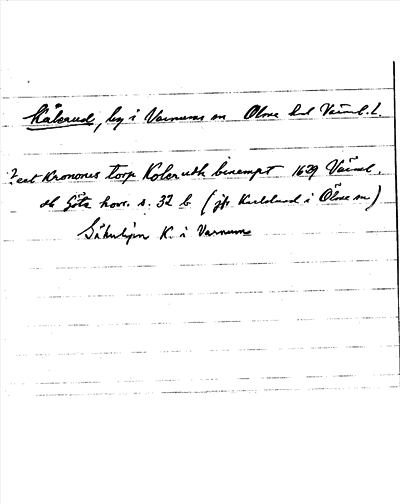 Kålerud, by i Varnums sn Ölme hd Värml. l.
? ett Kronones torp Kolerudh benempt 1629 Värml.
ob Göta hovr. s. 32 b (jfr Karlslund i Ölme sn)
K. i Varnum